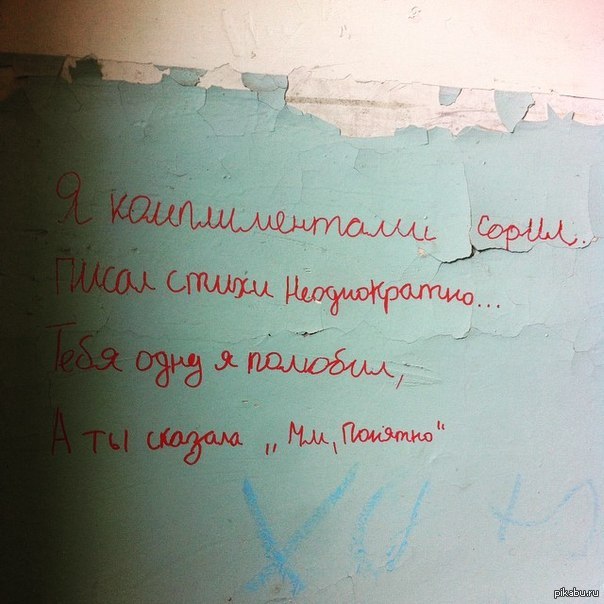 Я комплиментами сорил.
Писал стихи Неоднократно...
Тебя одну я полюбил,
А ты сказала „Мм, Понятно"
pikabu.ru